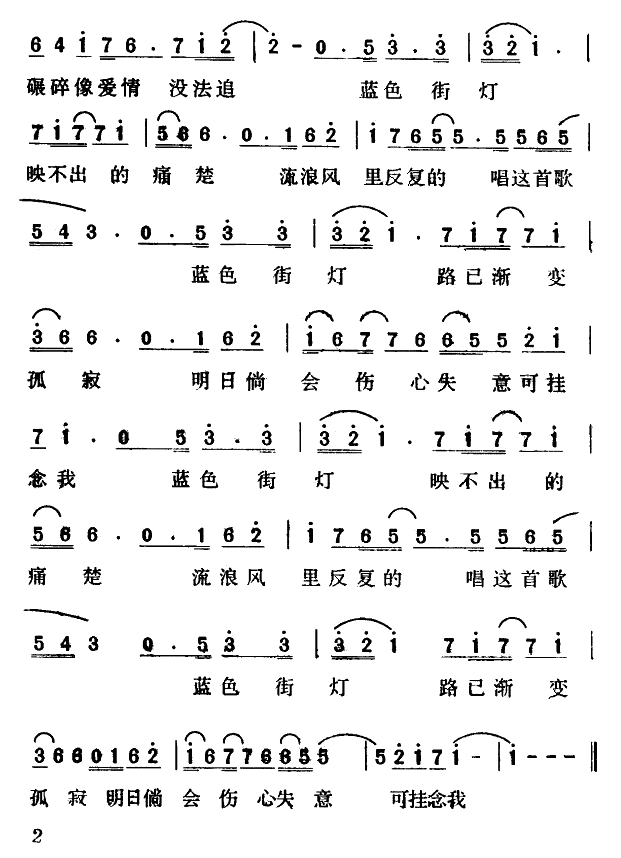 6 4 i 7 6 . 7 i 2 | 2 - 0 . 5 3 . 3 | 3 2 i . |
碾碎像爱情 没法追 蓝色 街 灯
7 i 7 7 i | 5 6 6 . 0 . 1 6 2 | i 7 6 5 5 . 5 5 6 5 |
映不出 的 痛 楚 流浪风 里反复的 唱这首歌
5 4 3 . 0 . 5 3 3 | 3 2 i . 7 i 7 7 i |
蓝色 街 灯 路已渐 变
3 6 6 . 0 . 1 6 2 | i 6 7 7 6 6 5 5 2 i |
孤 寂 明日倘 会 伤 心失 意可挂
7 i . 0 5 3 . 3 | 3 2 i . 7 i 7 7 i |
念我 蓝色 街 灯 映不出 的
5 6 6 . 0 . 1 6 2 | i 7 6 5 5 . 5 5 6 5 |
痛 楚 流浪风 里反复的 唱这首歌
5 4 3 0 . 5 3 3 | 3 2 i 7 i 7 7 i |
蓝色 街 灯 路已渐 变
3 6 6 0 1 6 2 | i 6 7 7 6 6 5 5 | 5 2 i 7 i - | i - - - ‖
孤 寂 明日倘 会 伤 心失 意 可挂念我
2